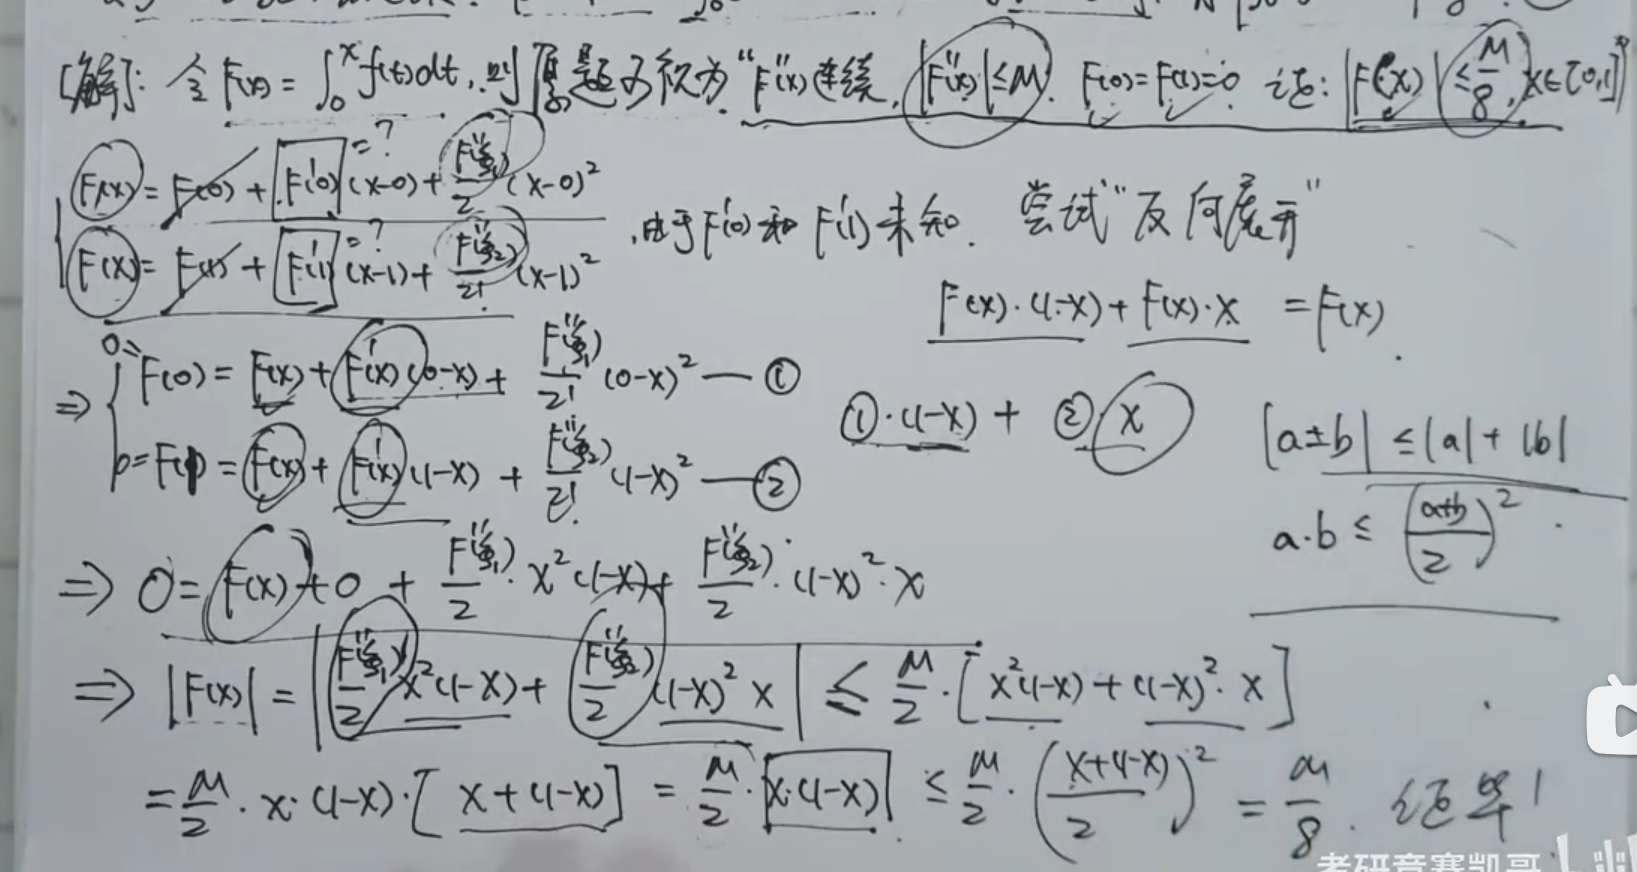 [解]: 令 F(x) = ∫₀ˣ f(t)dt, 则原题可积为 "F''(x) 连续, |F''(x)| ≤ M. F(0) = F(1) = 0 证: |F(x)| ≤ M/8, x∈[0,1]"
F(x) = F(0) + F'(0) (x-0) + F''(ξ₁)/2 (x-0)²
=?
F(x) = F(1) + F'(1) (x-1) + F''(ξ₂)/2! (x-1)²
=?
, 由于F'(0) 和 F'(1) 未知. 尝试 "反向展开"
F(x)·(1-x) + F(x)·x = F(x).
⇒ { 0= F(0) = F(x) + F'(x) (0-x) + F''(ξ₁)/2! (0-x)² — ①
0=F(1) = F(x) + F'(x) (1-x) + F''(ξ₂)/2! (1-x)² — ②
①·(1-x) + ②·x
|a±b| ≤ |a| + |b|
a·b ≤ ((a+b)/2)².
⇒ 0 = F(x) + 0 + F''(ξ₁)/2 · x²(1-x) + F''(ξ₂)/2 · (1-x)²·x
⇒ |F(x)| = | F''(ξ₁)/2 x²(1-x) + F''(ξ₂)/2 (1-x)² x | ≤ M/2 · [x²(1-x) + (1-x)²·x]
= M/2 · x·(1-x)·[x+(1-x)] = M/2 · x·(1-x) ≤ M/2 · ((x+(1-x))/2)² = M/8. 证毕!
考研竞赛凯哥